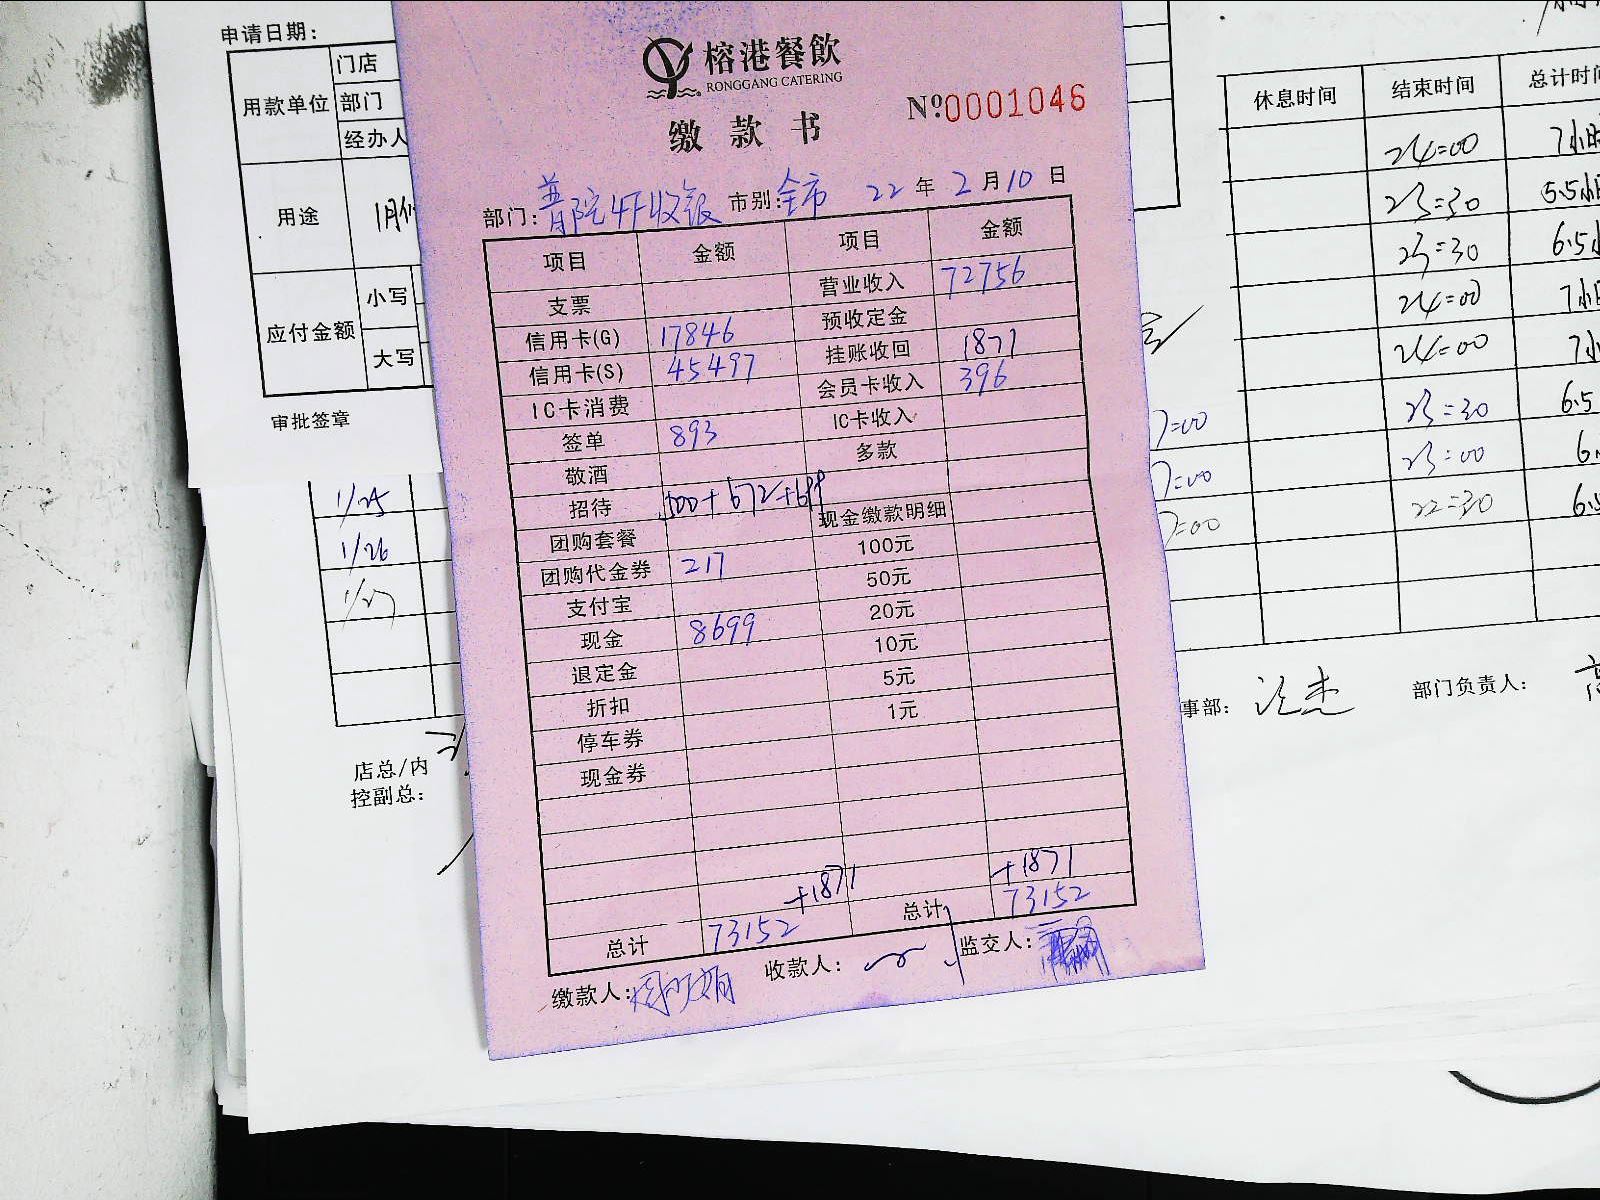 申请日期:
用款单位
门店
部门
经办人
用途
1月份
应付金额
小写
大写
审批签章
1/25
1/26
1/27
店总/内
控副总:
榕港餐飲
RONGGANG CATERING
缴款书
№0001046
部门:普陀4F收银 市别:全市 22年2月10日
项目 金额 项目 金额
支票 营业收入 72756
信用卡(G) 17846 预收定金
信用卡(S) 45497 挂账收回 1871
IC卡消费 会员卡收入 396
签单 893 IC卡收入
敬酒 多款
招待 500+672+699 现金缴款明细
团购套餐 100元
团购代金券 217 50元
支付宝 20元
现金 8699 10元
退定金 5元
折扣 1元
停车券
现金券
+1871 +1871
总计 73152 总计 73152
缴款人: 收款人: 监交人:
休息时间 结束时间 总计时间
24=00 7小时
23=30 5.5小时
23=30 6.5小
24=00 7小时
24=00 7小
7=00 23=30 6.5
7=00 23=00 6.
7=00 22=30 6.5
事部: 部门负责人: